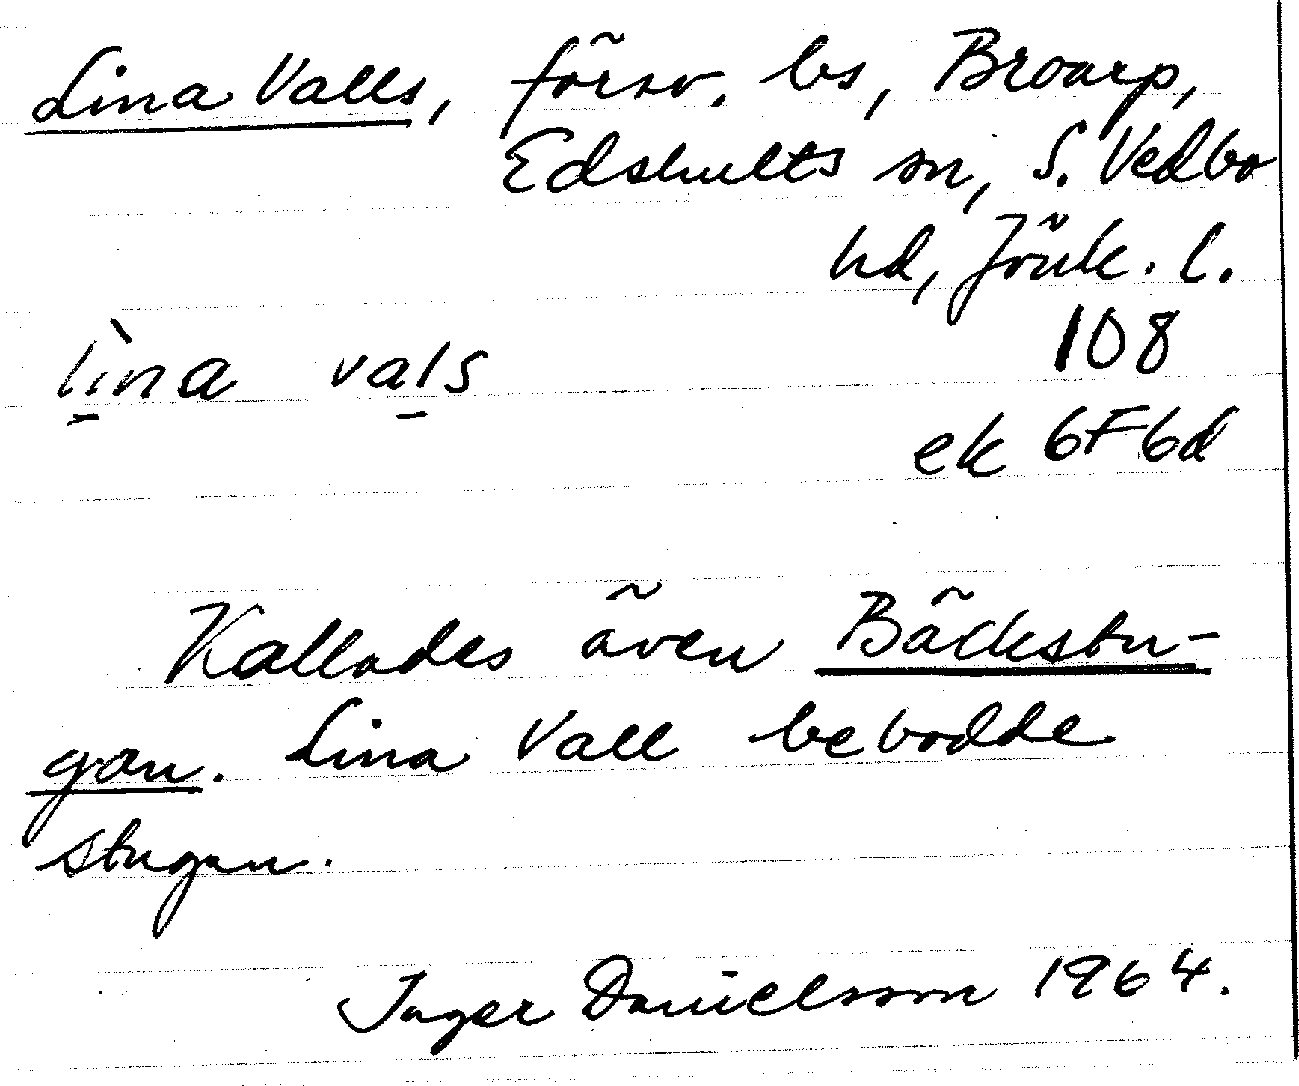 Lina Valls, försv. bs, Broarp,
Edshults sn, S. Vedbo
hd, Jönk. l.
lìna vals 108
ek 6F6d
Kallades även Bäckstu-
gan. Lina Vall bebodde
stugan.
Inger Danielsson 1964.